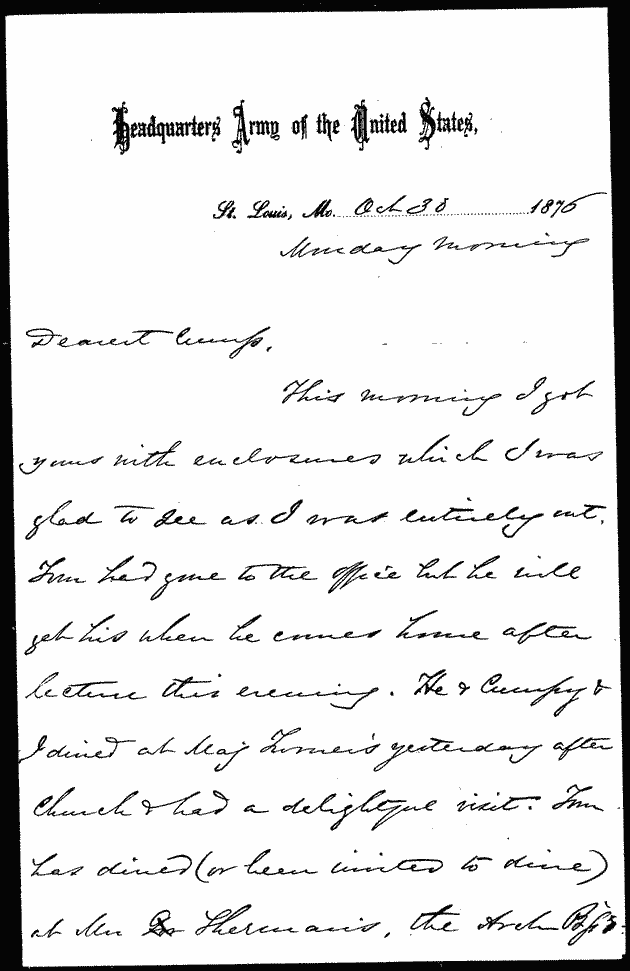 Headquarters Army of the United States,
St. Louis, Mo. Oct 30 1876
Monday morning
Dearest Cump,
This morning I got
yours with enclosures which I was
glad to see as I was entirely out.
Tom had gone to the office but he will
get his when he comes home after
lecture this evening. He & Cumpy &
I dined at Maj Turner's yesterday after
Church & had a delightful visit. Tom
has dined (or been invited to dine)
at Mrs Sherman's, the Arch Bp's